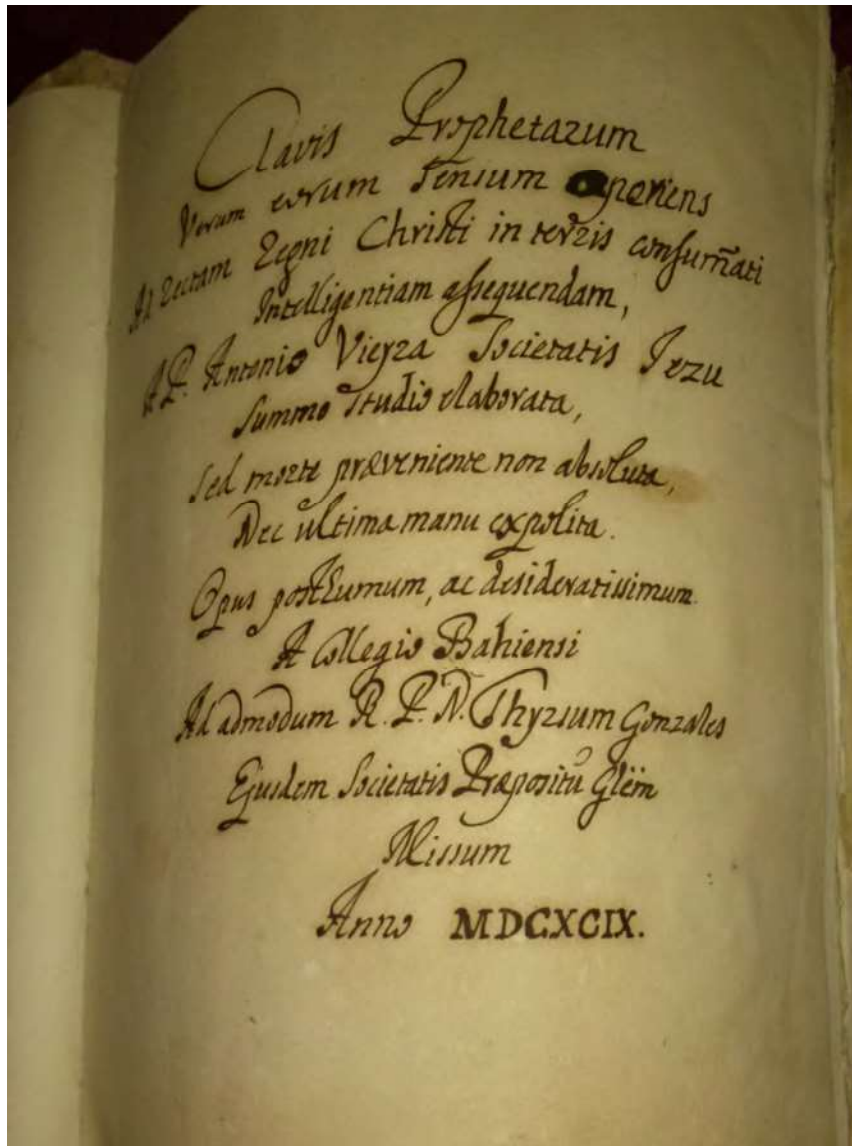 Clavis Prophetarum
Verum eorum sensum aperiens
Ad rectam Regni Christi in terris consum̃ati
Intelligentiam assequendam,
A P. Antonio Vieyra Societatis Jezu
Summo studio elaborata,
Sed morte præveniente non absoluta,
Nec ultima manu expolita.
Opus posthumum, ac desideratissimum
A Collegio Bahiensi
Ad admodum R. P. N. Thyrsum Gonzales
Ejusdem Societatis Præpositũ Gl̃em
Missum
Anno MDCXCIX.